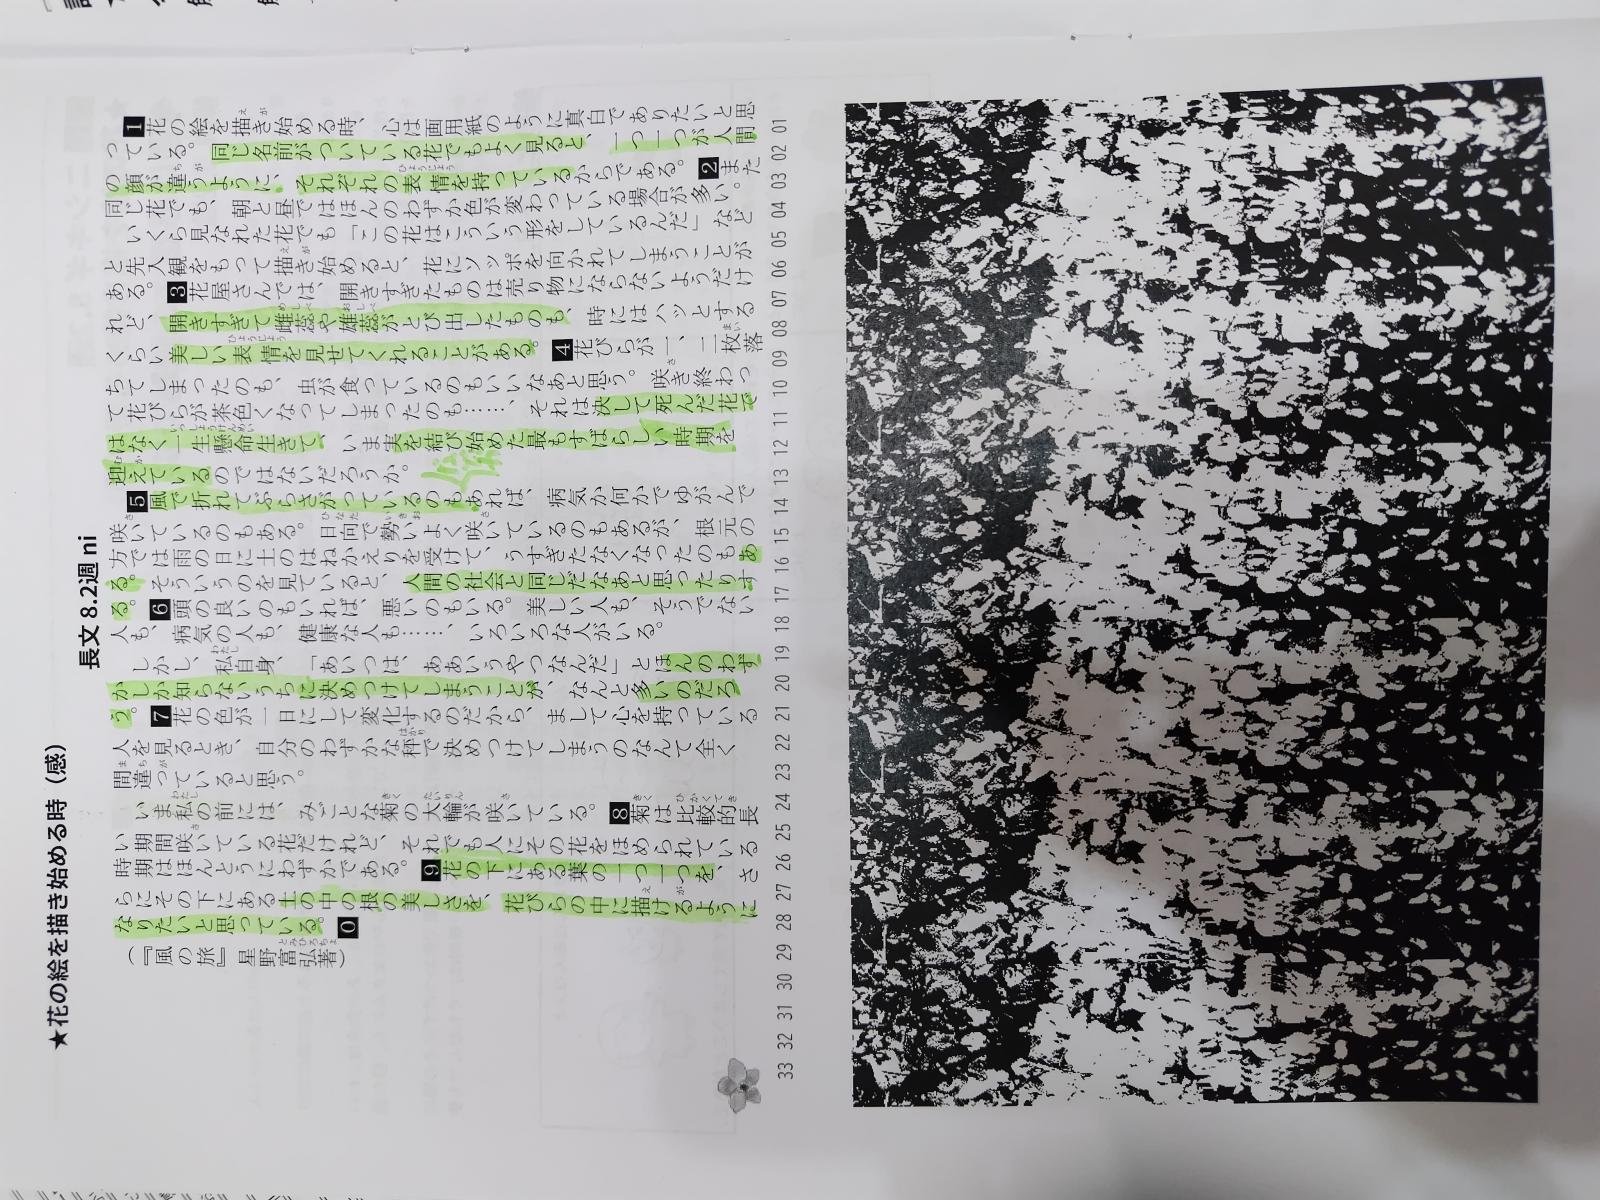 ★花の絵を描き始める時（感）
長文 8.2週 ni
1花の絵を描き始める時、心は画用紙のように真白でありたいと思
っている。同じ名前がついている花でもよく見ると、一つ一つが人間
の顔が違うように、それぞれの表情を持っているからである。2また
同じ花でも、朝と昼ではほんのわずか色が変わっている場合が多い。
いくら見なれた花でも「この花はこういう形をしているんだ」など
と先入観をもって描き始めると、花にソッポを向かれてしまうことが
ある。3花屋さんでは、開きすぎたものは売り物にならないようだけ
れど、開きすぎて雌蕊や雄蕊がとび出したものも、時にはハッとする
くらい美しい表情を見せてくれることがある。4花びらが一、二枚落
ちてしまったのも、虫が食っているのもいいなあと思う。咲き終わっ
て花びらが茶色くなってしまったのも……、それは決して死んだ花で
はなく一生懸命生きて、いま実を結び始めた最もすばらしい時期を
迎えているのではないだろうか。
5風で折れてぶらさがっているのもあれば、病気か何かでゆがんで
咲いているのもある。日向で勢いよく咲いているのもあるが、根元の
方では雨の日に土のはねかえりを受けて、うすぎたなくなったのもあ
る。そういうのを見ていると、人間の社会と同じだなあと思ったりす
る。6頭の良いのもいれば、悪いのもいる。美しい人も、そうでない
人も、病気の人も、健康な人も……、いろいろな人がいる。
しかし、私自身、「あいつは、ああいうやつなんだ」とほんのわず
かしか知らないうちに決めつけてしまうことが、なんと多いのだろ
う。7花の色が一日にして変化するのだから、まして心を持っている
人を見るとき、自分のわずかな秤で決めつけてしまうのなんて全く
間違っていると思う。
いま私の前には、みごとな菊の大輪が咲いている。8菊は比較的長
い期間咲いている花だけれど、それでも人にその花をほめられている
時期はほんとうにわずかである。9花の下にある葉の一つ一つを、さ
らにその下にある土の中の根の美しさを、花びらの中に描けるように
なりたいと思っている。0
（『風の旅』 星野富弘著）
01 02 03 04 05 06 07 08 09 10 11 12 13 14 15 16 17 18 19 20 21 22 23 24 25 26 27 28 29 30 31 32 33